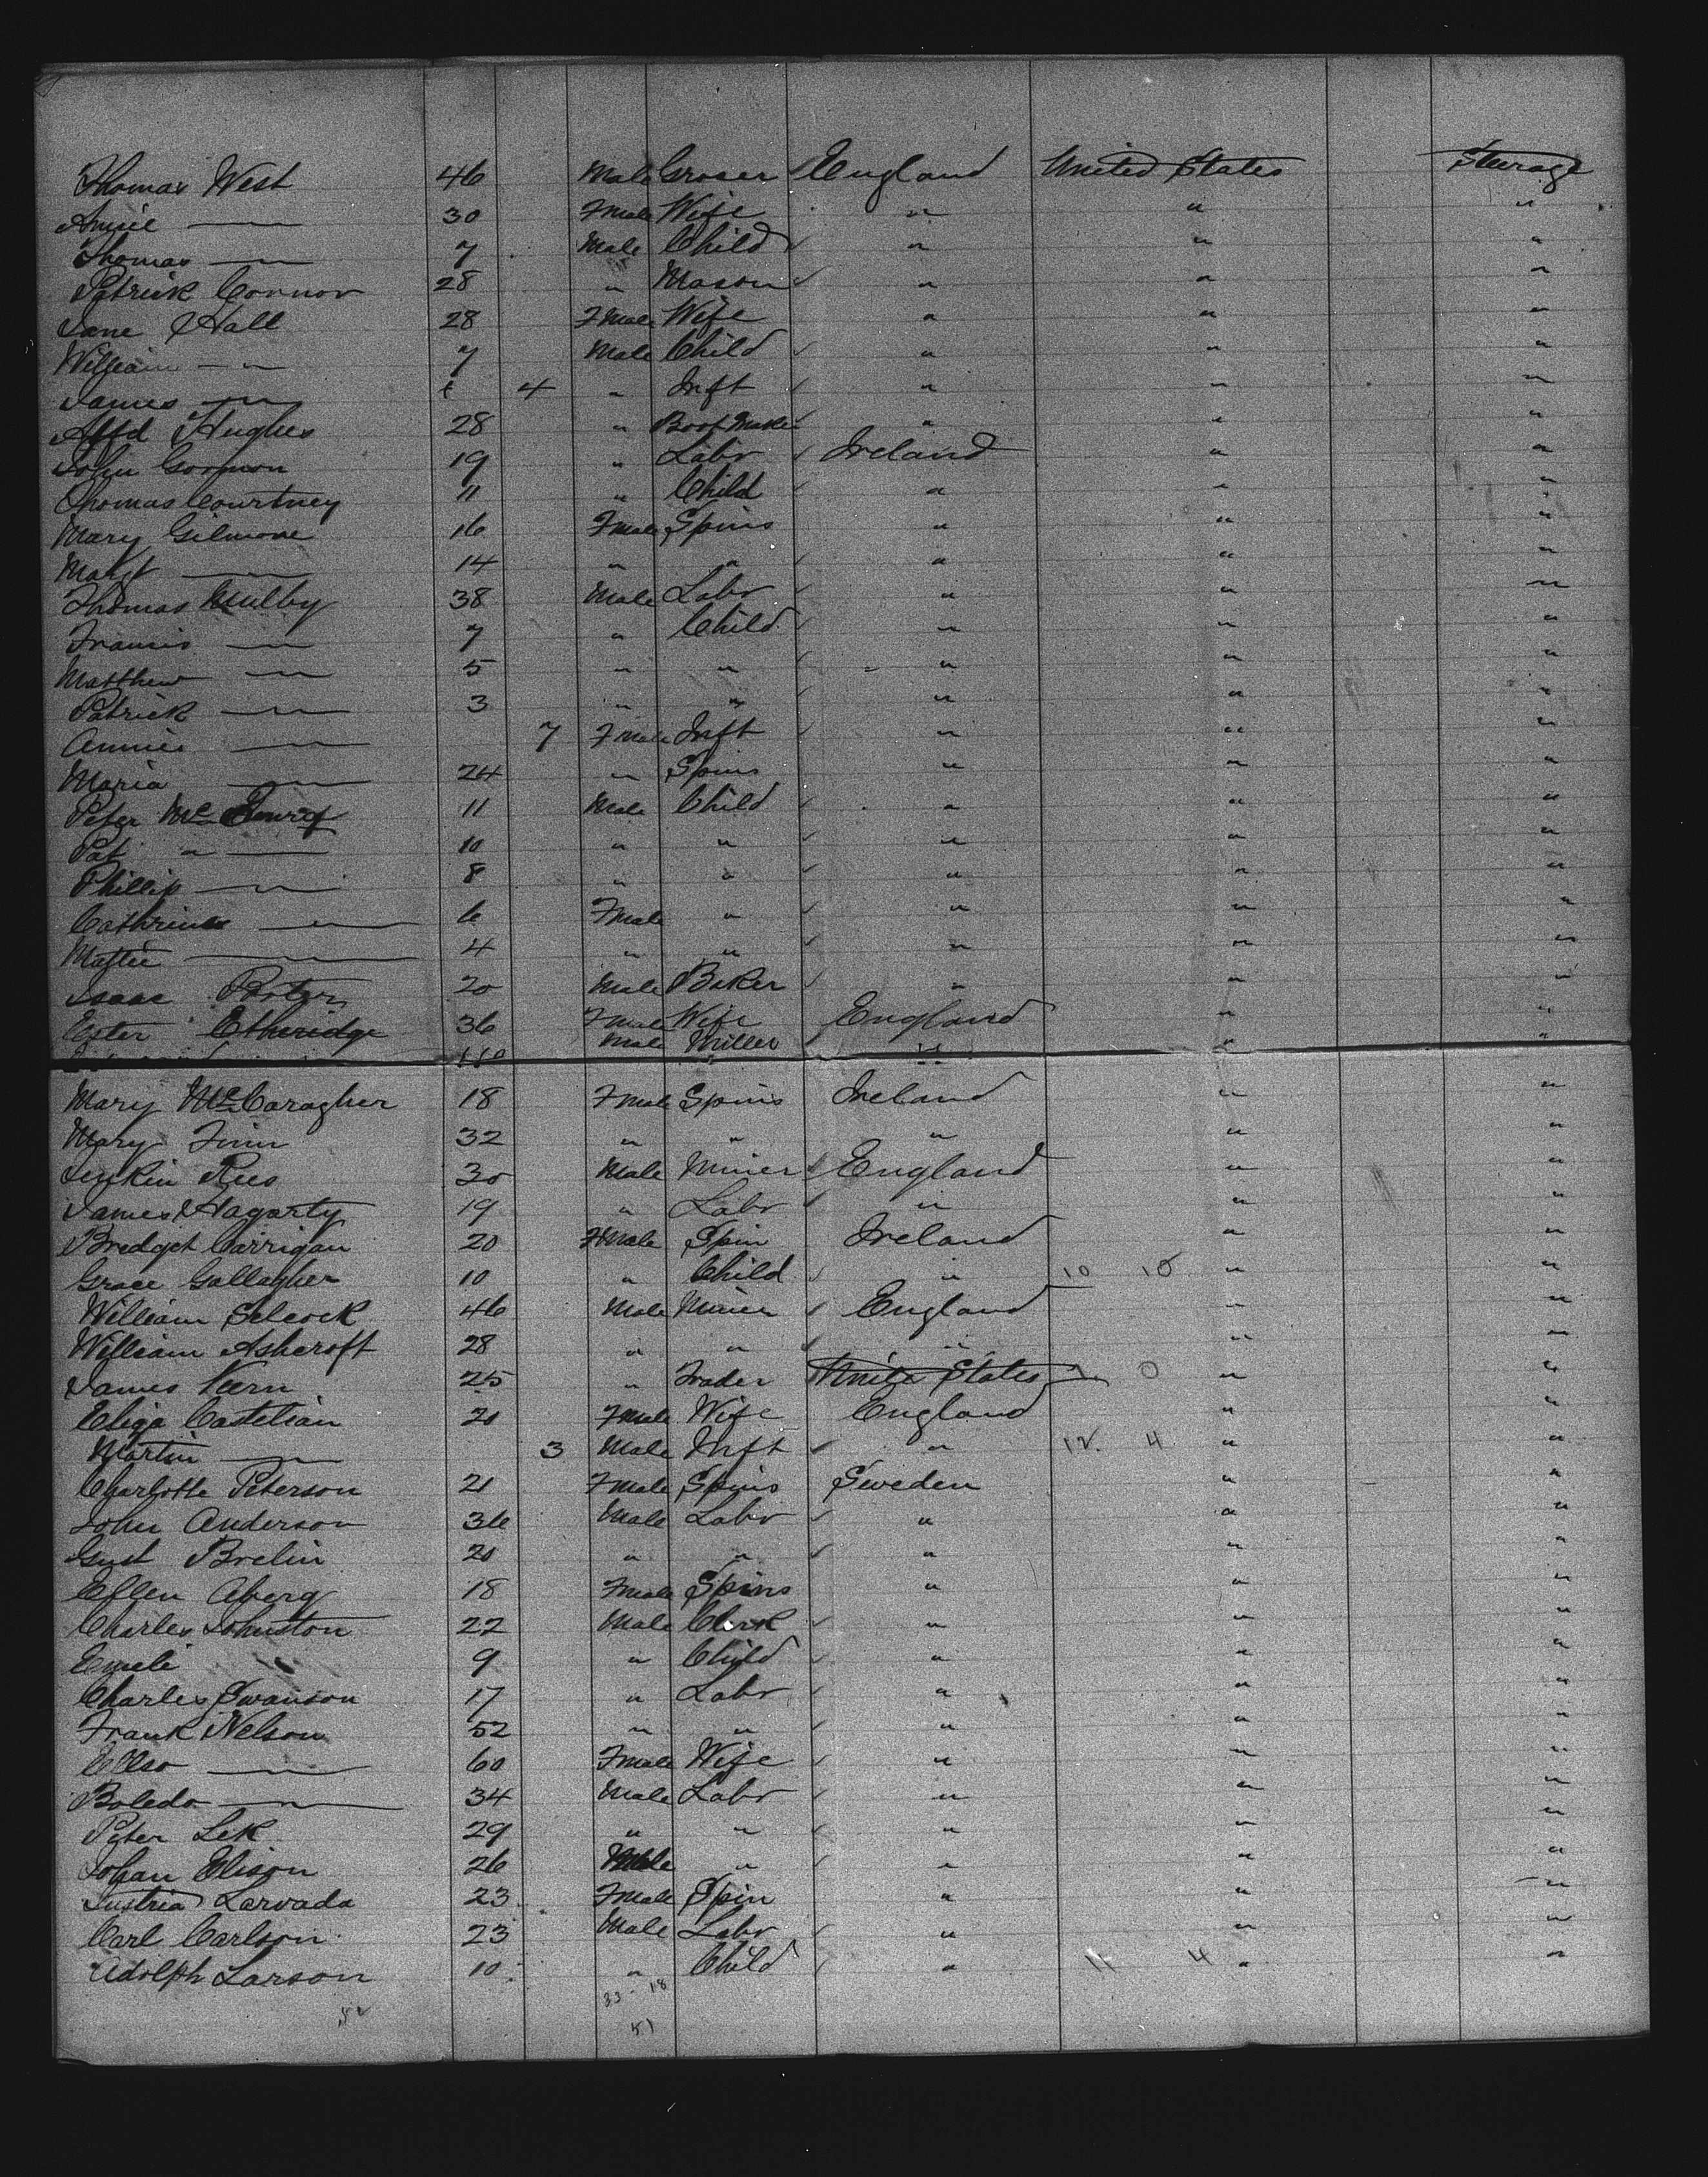 Thomas West 46 Male Grocer England United States Steerage
Annie —"— 30 Fmale Wife " " "
Thomas —"— 7 Male Child " " "
Patrick Connor 28 " Mason " " "
Jane Hall 28 Fmale Wife " " "
William —"— 7 Male Child " " "
James —"— 4 " Inft " " "
Alfd Hughes 28 " Boot Make " " "
John Gormon 19 " Labr Ireland " "
Thomas Courtney 11 " Child " " "
Mary Gilmore 16 Fmale Spins " " "
Margt —"— 14 " " " " "
Thomas 38 Male Labr " " "
Francis —"— 7 " Child " " "
Matthew —"— 5 " " " " "
Patrick —"— 3 " " " " "
Annie —"— 7 Fmale Inft " " "
Maria —"— 24 " Spins " " "
Peter Mc 11 Male Child " " "
Pat " — 10 " " " " "
Phillip —"— 8 " " " " "
Cathrine —"— 6 Fmale " " " "
—"— 4 " " " " "
Isaac Porter 20 Male Baker " " "
Ester Etheridge 36 Fmale Wife England " "
Male Miller " " "
Mary McCaragher 18 Fmale Spins Ireland " "
Mary Finn 32 " " " " "
Jenkin Rees 30 Male Miner England " "
James Hagarty 19 " Labr " " "
Bredget Carrigan 20 Fmale Spin Ireland " "
Grace Gallagher 10 " Child " 10 10 " "
William Selcock 46 Male Miner England " "
William Ashcroft 28 " " " " "
James Kern 25 " Trader United States 0 " "
Eliza Castelian 21 Fmale Wife England " "
Martin —"— 3 Male Inft " 12 4 " "
Charlotte Peterson 21 Fmale Spins Sweden " "
John Anderson 36 Male Labr " " "
Gust Brelin 20 " " " " "
Ellen Aberg 18 Fmale Spins " " "
Charles Johnston 22 Male Clerk " " "
Emeli 9 " Child " " "
Charles Swanson 17 " Labr " " "
Frank Nelson 52 " " " " "
—"— 60 Fmale Wife " " "
Boledo —"— 34 Male Labr " " "
Peter Lek 29 " " " " "
Johan Elison 26 Male " " " "
Larvada 23 Fmale Spin " " "
Carl Carlson 23 Male Labr " " "
Adolph Larson 10 " Child " 11 4 " "
33 - 18
52 51